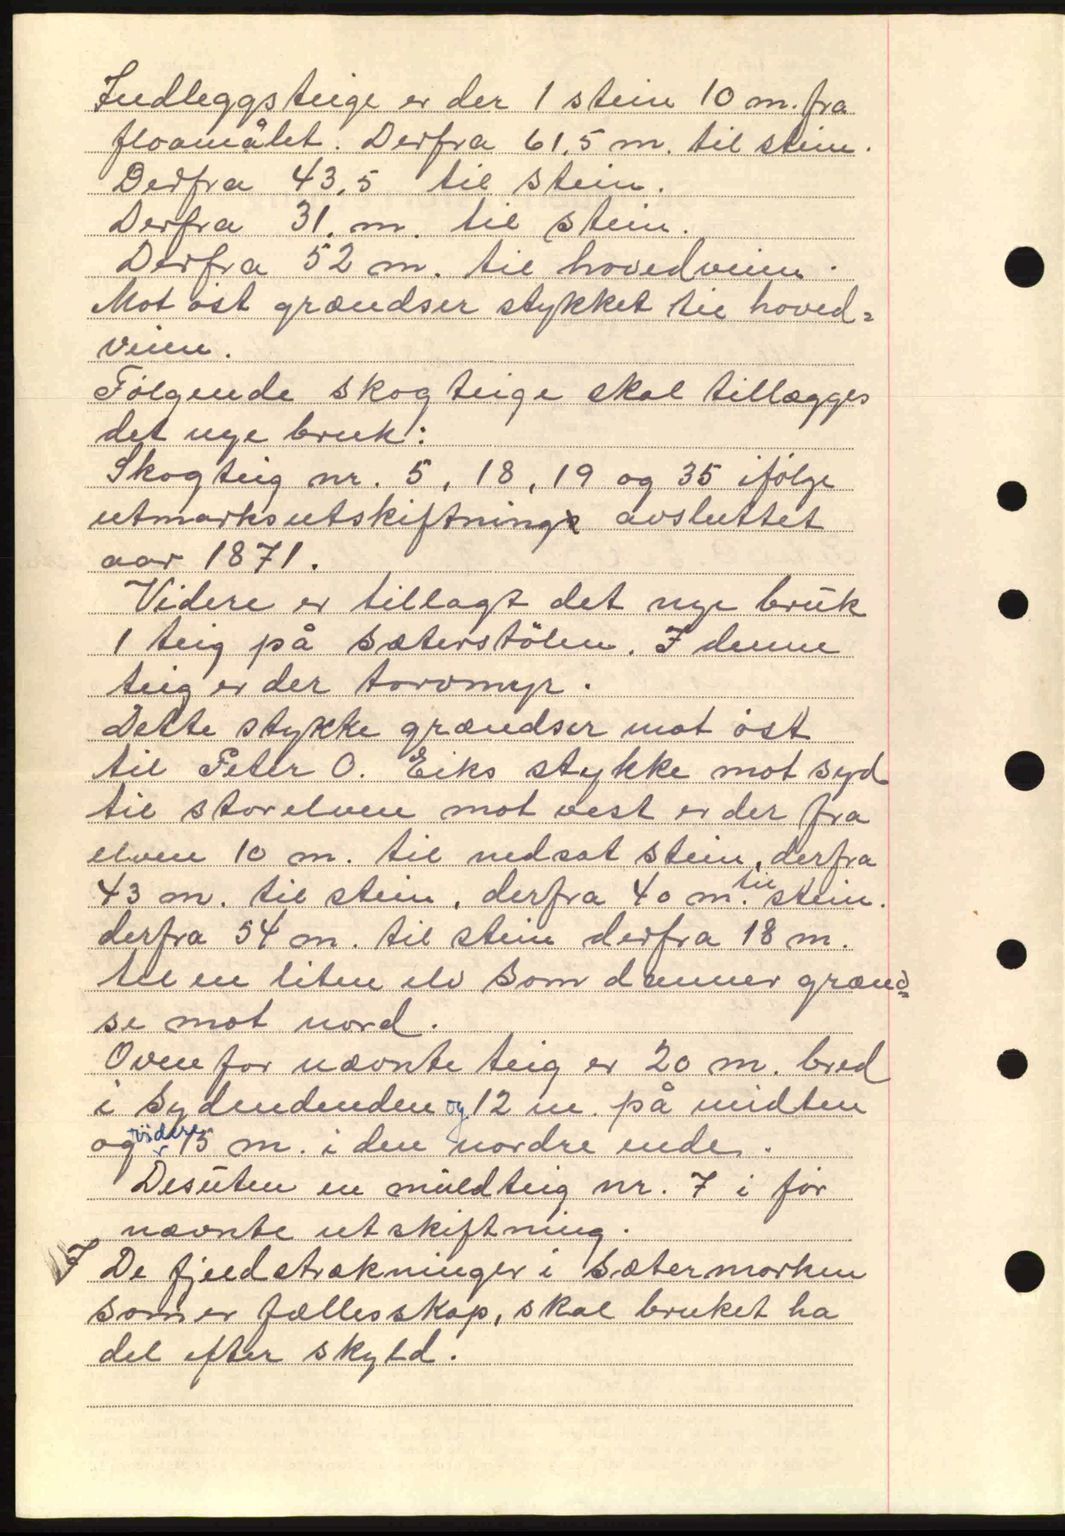 Indleggsteige er der 1 stein 10 m. fra
floamålet. Derfra 61,5 m. til stein.
Derfra 43,5 til stein.
Derfra 31. m. til stein.
Derfra 52 m. til hovedveien.
Mot øst grændser stykket til hoved=
veien.
Følgende skogteige skal tillægges
det nye bruk:
Skogteig nr. 5, 18, 19 og 35 ifølge
utmarksutskiftning avsluttet
aar 1871.
Videre er tillagt det nye bruk
1 teig på sæterstölen. I denne
teig er der torvmyr.
Dette stykke grændser mot øst
til Peter O. Eiks stykke mot syd
til storelven mot vest er der fra
elven 10 m. til nedsat stein, derfra
43 m. til stein, derfra 40 m. til stein.
derfra 54 m. til stein derfra 18 m.
til en liten elv som danner grænd=
se mot nord.
Ovenfor nævnte teig er 20 m. bred
i sydendenden og 12 m. på midten
og videre 15 m. i den nordre ende.
Desuten en muldteig nr. 7 i før
nævnte utskiftning.
I De fjeldstrækninger i sætermarken
som er fællesskap, skal bruket ha
del efter skyld.